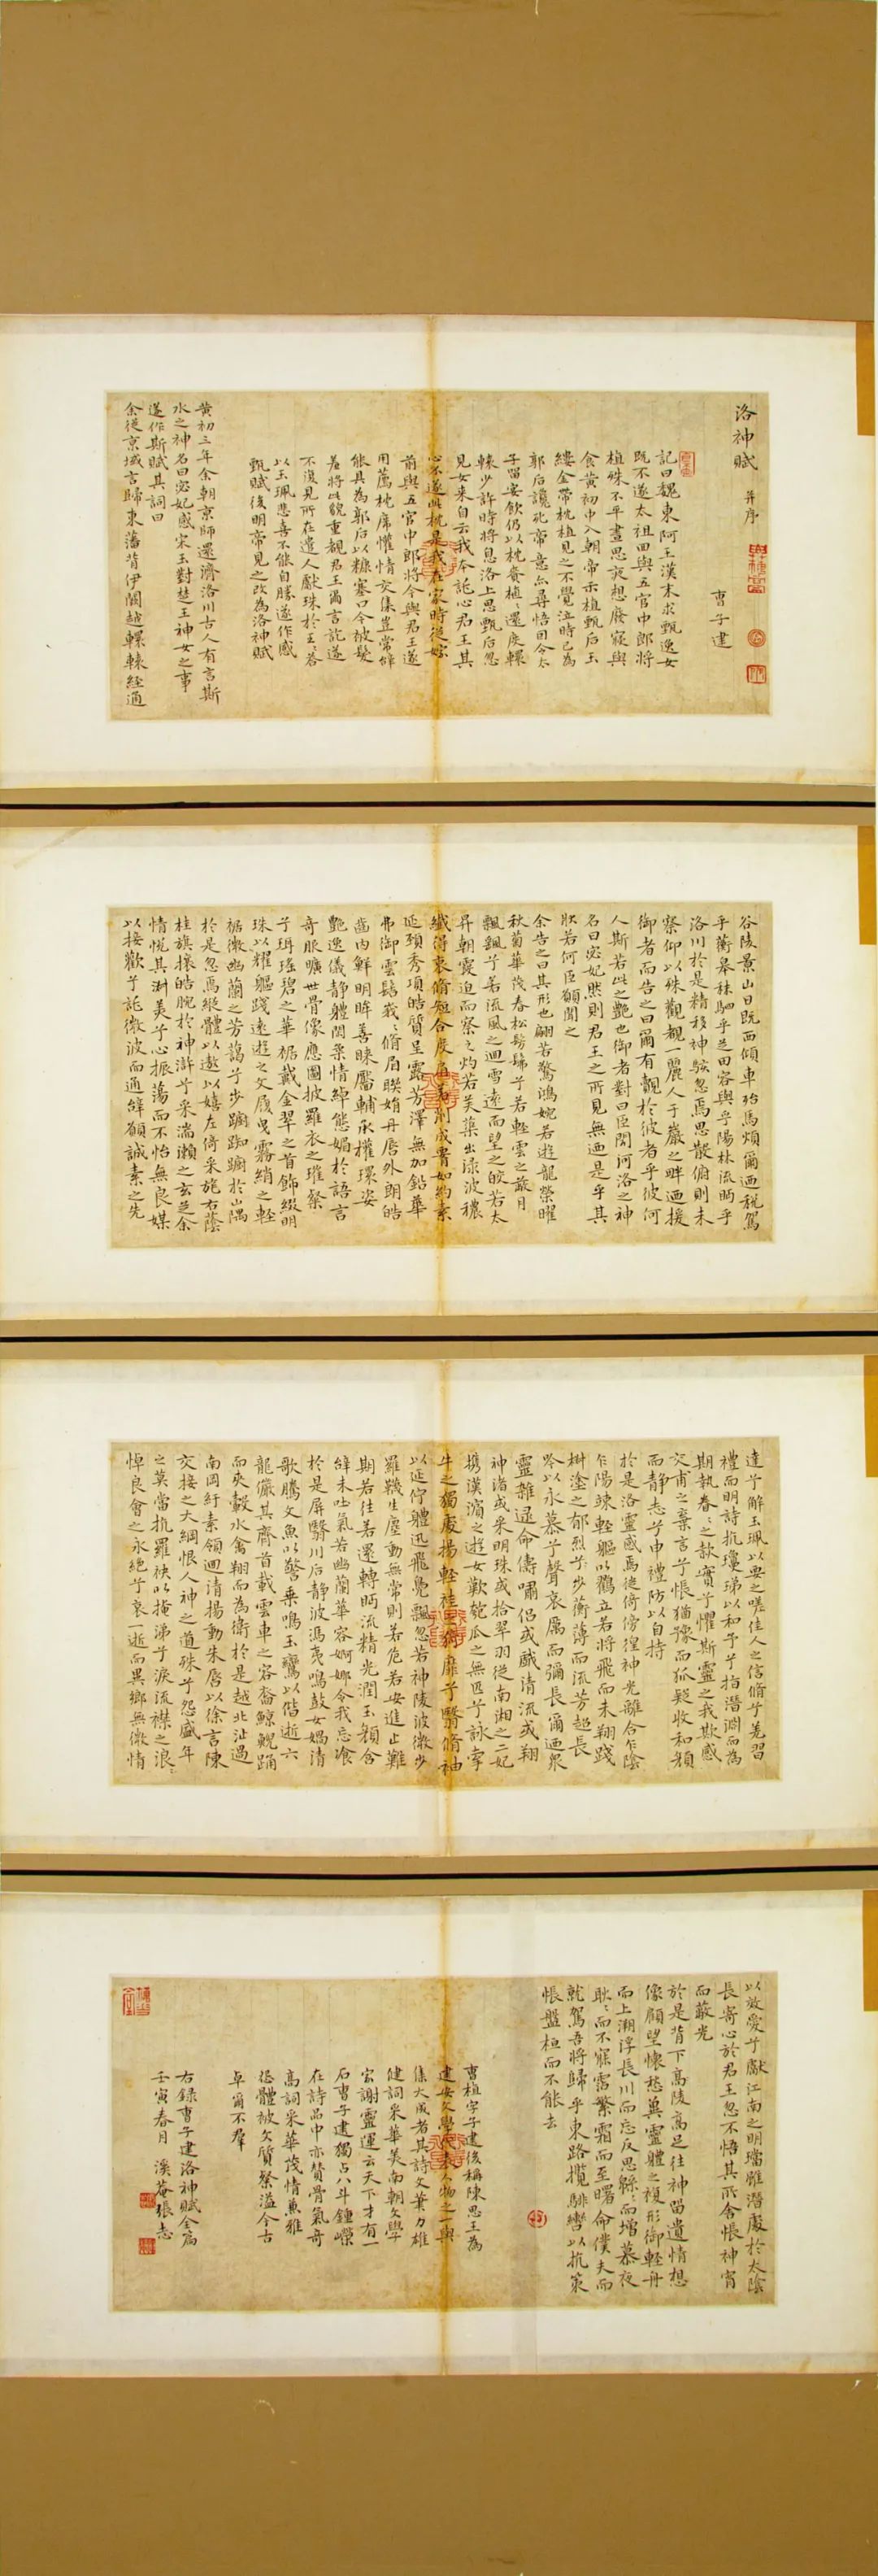 洛神賦 并序
曹子建
記曰魏東阿王漢末求甄逸女
既不遂太祖回與五官中郎將
植殊不平晝思夜想廢寢與
食黃初中入朝帝示植甄后玉
縷金帶枕植見之不覺泣時已為
郭后讒死帝意亦尋悟因令太
子留安飲仍以枕賚植還度轘
轅少許時將息洛上思甄后忽
見女來自云我本託心君王其
心不遂此枕是我在家時從嫁
前與五官中郎將今與君王遂
用薦枕席懽情交集豈常辭
能具為郭后以糠塞口今被髮
羞將此貌重覩君王爾言訖遂
不復見所在遣人獻珠於王答
以玉珮悲喜不能自勝遂作感
甄賦後明帝見之改為洛神賦
黃初三年余朝京師還濟洛川古人有言斯
水之神名曰宓妃感宋玉對楚王神女之事
遂作斯賦其詞曰
余從京域言歸東藩背伊闕越轘轅經通
谷陵景山日既西傾車殆馬煩爾迺稅駕
乎蘅皋秣駟乎芝田容與乎陽林流眄乎
洛川於是精移神駭忽焉思散俯則未
察仰以殊觀覩一麗人于巖之畔迺援
御者而告之曰爾有覿於彼者乎彼何
人斯若此之艷也御者對曰臣聞河洛之神
名曰宓妃然則君王之所見無迺是乎其
狀若何臣願聞之
余告之曰其形也翩若驚鴻婉若遊龍榮曜
秋菊華茂春松髣髴兮若輕雲之蔽月
飄飄兮若流風之迴雪遠而望之皎若太
昇朝霞迫而察之灼若芙蕖出淥波穠
纖得衷脩短合度肩若削成腰如約素
延頸秀項皓質呈露芳澤無加鉛華
弗御雲髻峩峩脩眉聯娟丹唇外朗皓
齒內鮮明眸善睞靨輔承權瓌姿
艷逸儀靜體閑柔情綽態媚於語言
奇服曠世骨像應圖披羅衣之璀粲
兮珥瑤碧之華裾戴金翠之首飾綴明
珠以耀軀踐遠遊之文履曳霧綃之輕
裾微幽蘭之芳藹兮步踟躕於山隅
於是忽焉縱體以遨以嬉左倚采旄右蔭
桂旗攘皓腕於神滸兮采湍瀨之玄芝余
情悅其淑美兮心振蕩而不怡無良媒
以接歡兮託微波而通辭願誠素之先
達兮解玉珮以要之嗟佳人之信脩兮羌習
禮而明詩抗瓊珶以和予兮指潛淵而為
期執眷眷之款實兮懼斯靈之我欺感
交甫之棄言兮悵猶豫而狐疑收和顏
而靜志兮申禮防以自持
於是洛靈感焉徙倚傍徨神光離合乍陰
乍陽竦輕軀以鶴立若將飛而未翔踐
椒塗之郁烈兮步蘅薄而流芳超長
吟以永慕兮聲哀厲而彌長爾迺眾
靈雜遝命儔嘯侶或戲清流或翔
神渚或采明珠或拾翠羽從南湘之二妃
攜漢濱之遊女歎匏瓜之無匹兮詠牽
牛之獨處揚輕袿之猗靡兮翳脩袖
以延佇體迅飛鳧飄忽若神陵波微步
羅韈生塵動無常則若危若安進止難
期若往若還轉眄流精光潤玉顏含
辭未吐氣若幽蘭華容婀娜令我忘飡
於是屏翳川后靜波馮夷鳴鼓女媧清
歌騰文魚以警乘鳴玉鸞以偕逝六
龍儼其齊首載雲車之容裔鯨鯢踊
而夾轂水禽翔而為衛於是越北沚過
南岡紆素領迴清揚動朱唇以徐言陳
交接之大綱恨人神之道殊兮怨盛年
之莫當抗羅袂以掩涕兮淚流襟之浪浪
悼良會之永絕兮哀一逝而異鄉無微情
以效愛兮獻江南之明璫雖潛處於太陰
長寄心於君王忽不悟其所舍悵神宵
而蔽光
於是背下高陵高足往神留遺情想
像顧望懷愁冀靈體之復形御輕舟
而上溯浮長川而忘反思緜緜而增慕夜
耿耿而不寐霑繁霜而至曙命僕夫而
就駕吾將歸乎東路攬騑轡以抗策
悵盤桓而不能去
曹植字子建後稱陳思王為
建安文學代表人物之一與
集大成者其詩文筆力雄
健詞采華美南朝文學
家謝靈運云天下才有一
石曹子建獨占八斗鍾嶸
在詩品中亦贊骨氣奇
高詞采華茂情兼雅
怨體被文質粲溢今古
卓爾不群
右錄曹子建洛神賦全篇
壬寅春月 溪菴張志